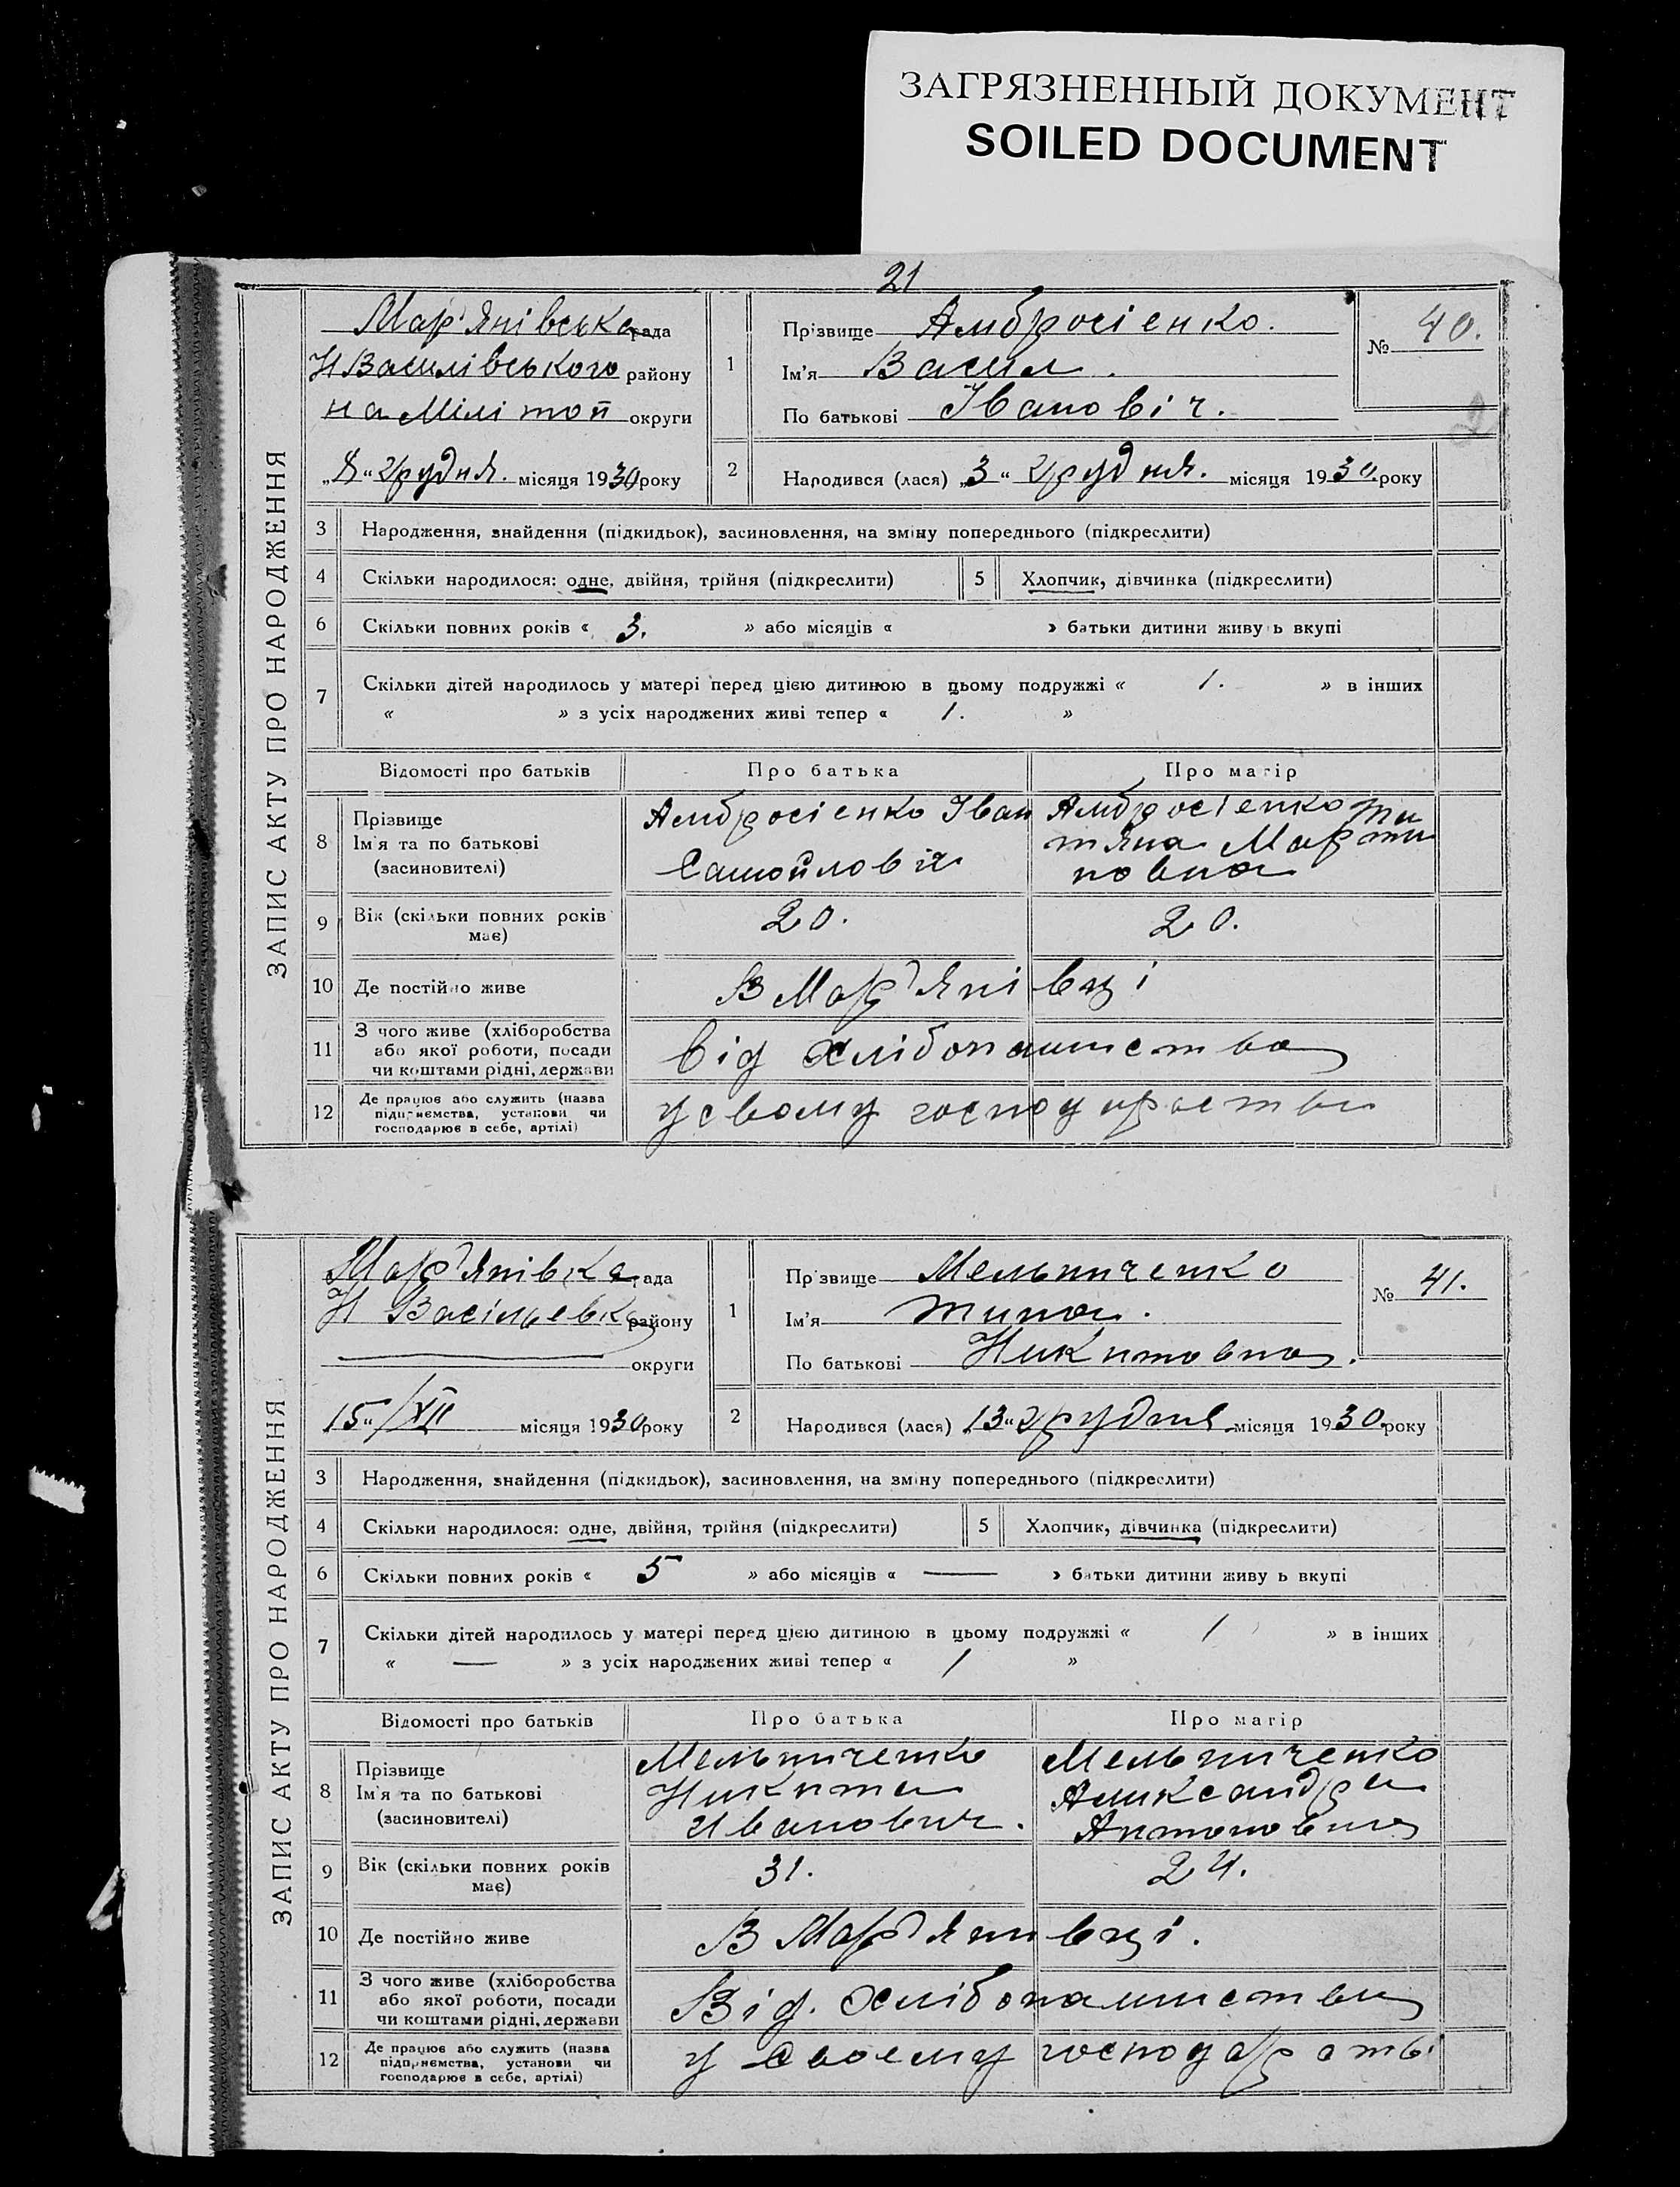 ЗАГРЯЗНЕННЫЙ ДОКУМЕНТ
SOILED DOCUMENT
21
ЗАПИС АКТУ ПРО НАРОДЖЕННЯ
Мар'янівська рада
Н Василівського району
на Мілітоп округи
„8“ грудня. місяця 1930 року
1
Прізвище Амбросіенко.
Ім'я Васил.
По батькові Івановіч.
№ 40.
2
Народився (лася) „3“ грудня. місяця 1930. року
3 Народження, знайдення (підкидьок), засиновлення, на зміну попереднього (підкреслити)
4 Скільки народилося: одне, двійня, трійня (підкреслити) 5 Хлопчик, дівчинка (підкреслити)
6 Скільки повних років « 3. » або місяців « » батьки дитини живуь вкупі
7 Скільки дітей народилось у матері перед цією дитиною в цьому подружжі « 1. » в інших
« » з усіх народжених живі тепер « 1. »
Відомості про батьків Про батька Про матір
8 Прізвище
Ім'я та по батькові
(засновителі)
Амбросіенко Іван
Самойловіч
Амбросіенко Та
тяна Марти
новна
9 Вік (скільки повних років
має)
20. 20.
10 Де постійно живе В Мар'янівці
11 З чого живе (хліборобства
або якої роботи, посади
чи коштами рідні, держави
від хлібопашества
12 Де працює або служить (назва
підприємства, установи чи
господарює в себе, артілі)
у свому
ЗАПИС АКТУ ПРО НАРОДЖЕННЯ
Мар'янівка рада
Н Васільевка району
округи
15“/XII місяця 1930 року
1
Прізвище Мельниченко
Ім'я
По батькові Никитовна.
№ 41.
2
Народився (лася) „13“ грудня місяця 1930. року
3 Народження, знайдення (підкидьок), засиновлення, на зміну попереднього (підкреслити)
4 Скільки народилося: одне, двійня, трійня (підкреслити) 5 Хлопчик, дівчинка (підкреслити)
6 Скільки повних років « 5 » або місяців « — » батьки дитини живуь вкупі
7 Скільки дітей народилось у матері перед цією дитиною в цьому подружжі « 1 » в інших
« — » з усіх народжених живі тепер « 1 »
Відомості про батьків Про батька Про матір
8 Прізвище
Ім'я та по батькові
(засиновителі)
Мельниченко
Никита
Иванович.
Мельниченко
Аликсандра
Антоновна
9 Вік (скільки повних років
має)
31. 24.
10 Де постійно живе В Мар'янивці.
11 З чого живе (хліборобства
або якої роботи, посади
чи коштами рідні, держави
Від. хлібопашиства
12 Де працює або служить (назва
підприємства, установи чи
господарює в себе, артілі)
у своему